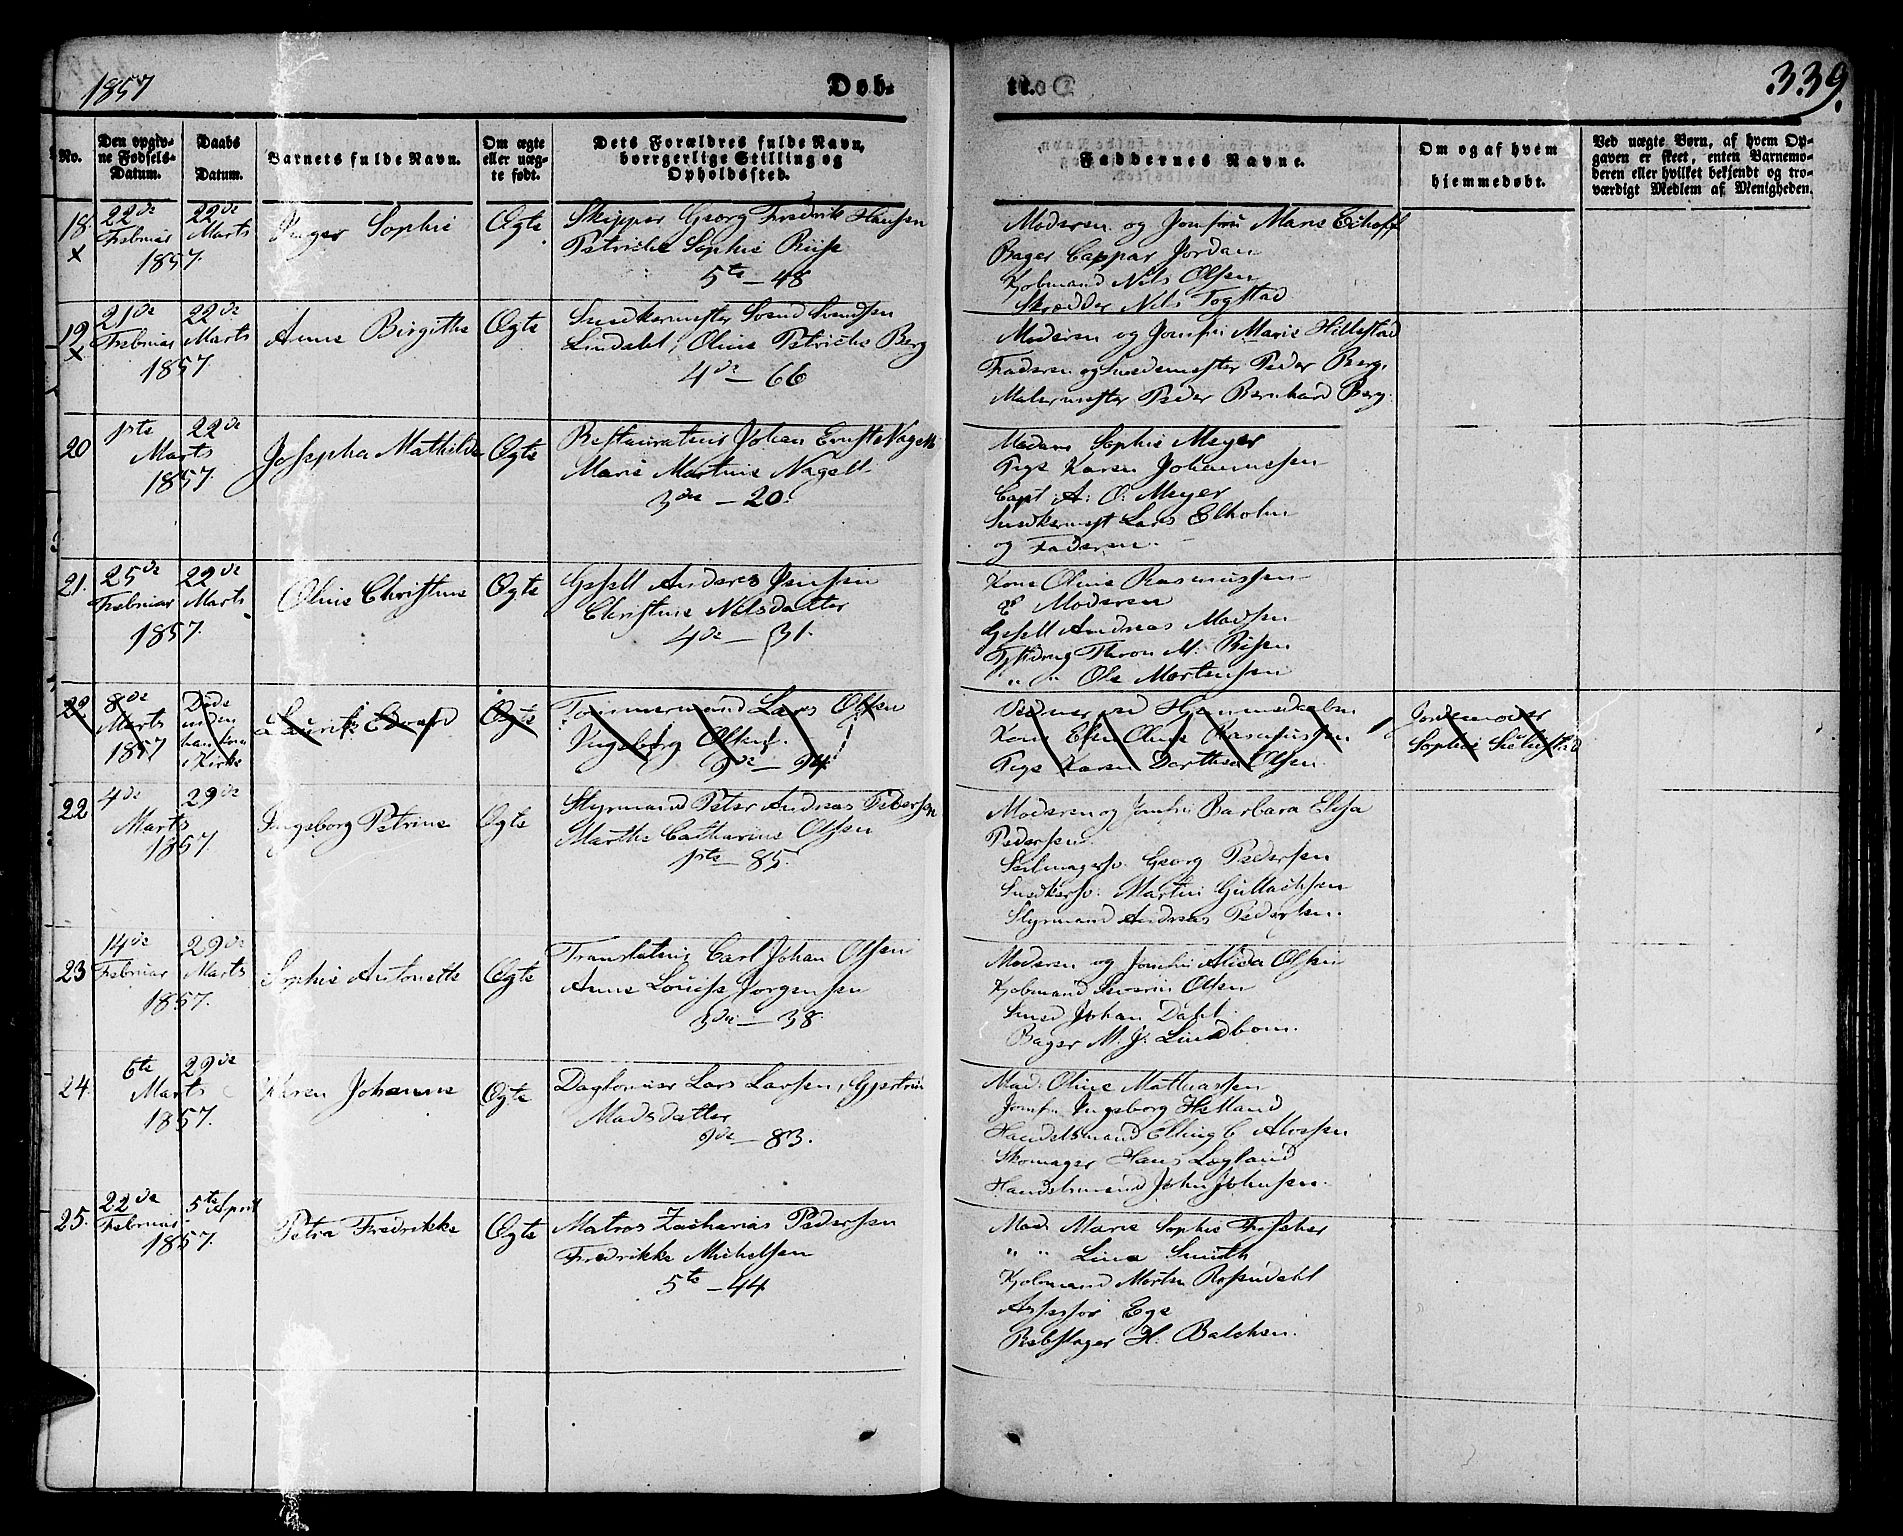 1857
Døb-
te.
339.
No.
Den opgiv-
ne Fødsels-
Datum.
Daabs
Datum.
Barnets fulde Navn.
Om ægte
eller uæg-
te født.
Dets Forældres fulde Navn,
borgerlige Stilling og
Opholdssted.
Faddernes Navne.
Om og af hvem
hjemmedøbt.
Ved uægte Børn, af hvem Op-
gaven er skeet, enten Barnemo-
deren eller hvilket bekjendt og tro-
værdigt Medlem af Menigheden.
18.
x
22de
Februar
1857.
22de
Marts
Inger Sophie
Ægte
Skipper Georg Fredrik Hansen
Petriche Sophie Riise
5te – 48
Moderen og Jomfru Marie Eckhoff
Bager Cappar Jordan
Kjobmand Nils Olsen
Skrædder Nils Togstad
19
x
21de
Februar
1857.
22de
Marts
Anne Birgithe
Ægte
Snedkermester Svend Svendsen
Lindahl, Oline Petriche Berg
4de – 66
Moderen og Jomfru Marie Hillestad
Faderen og Smedemester Peder Berg.
Malermester Peder Bernhard Berg.
20
1ste
Marts
1857.
22de
Josepha Mathilde
Ægte
Restaurateur Johan Ernst Nagell
Marie Martine Nagell
3die – 20.
Madam Sophie Meyer
Pige Karen Johannessen
Capt A: O: Meyer
Snedkermest Lars Elholm
og Faderen.
21.
25de
Februar
1857.
22de
Marts
Oline Christine
Ægte
Gesell Anders Jensen
Christine Nilsdatter
4de – 31.
Kone Oline Rasmussen
& Moderen
Gesell Andreas Madsen
Tjdreng Thron M. Riisen
" " Ole Mortensen
22.
8de
Marts
1857
Døde
inden
han kom
i Kirke
Laurits Edvard
Ægte
Tømmermand Lars Olsen
Ingeborg Olsen.
2de – 94.
Vidner ved Hjemmedaaben
Kone Ellen Oline Rasmussen
Pige Karen Dorthea Olsen
Jordemoder
Sophie
22
4de
Marts
1857.
29de
Ingeborg Petrine
Ægte
Styrmand Peter Andreas Pedersen
Marthe Catharine Olsen
1ste – 85.
Moderen og Jomfru Barbara Elisa
Pedersen.
Seilmagersv. Georg Pedersen
Snedkersv. Martin Gullachsen
Styrmand Andreas Pedersen.
23
14de
Februar
1857.
29de
Marts
Sophie Antonette
Ægte
Translateur Carl Johan Olsen
Anne Lovise Jørgensen
3die – 38.
Moderen og Jomfru Alida Olsen
Kjobmand Severin Olsen
Smed Johan Dahl.
Bager M. J. Lindbom.
24.
6te
Marts
1857.
29de
Karen Johanne
Ægte
Dagloner Lars Larsen, Gjertrui
Madsdatter
2de – 83.
Mad. Oline Mathiassen
Jomfru Ingeborg Helland
Handelsmand Elling C Alvsen
Skomager Hans Løgland
Handelsmand John Johnsen.
25.
22de
Februar
1857.
5te April
Petra Fredrikke
Ægte
Matros Zacharias Pedersen
Fredrikke Michelsen
5te – 44
Mad. Marie Sophie Fischer
" " Lina Smith
Kjobmand Morten Rosendahl
Assessor Ege
Rebslager H. Balchen.